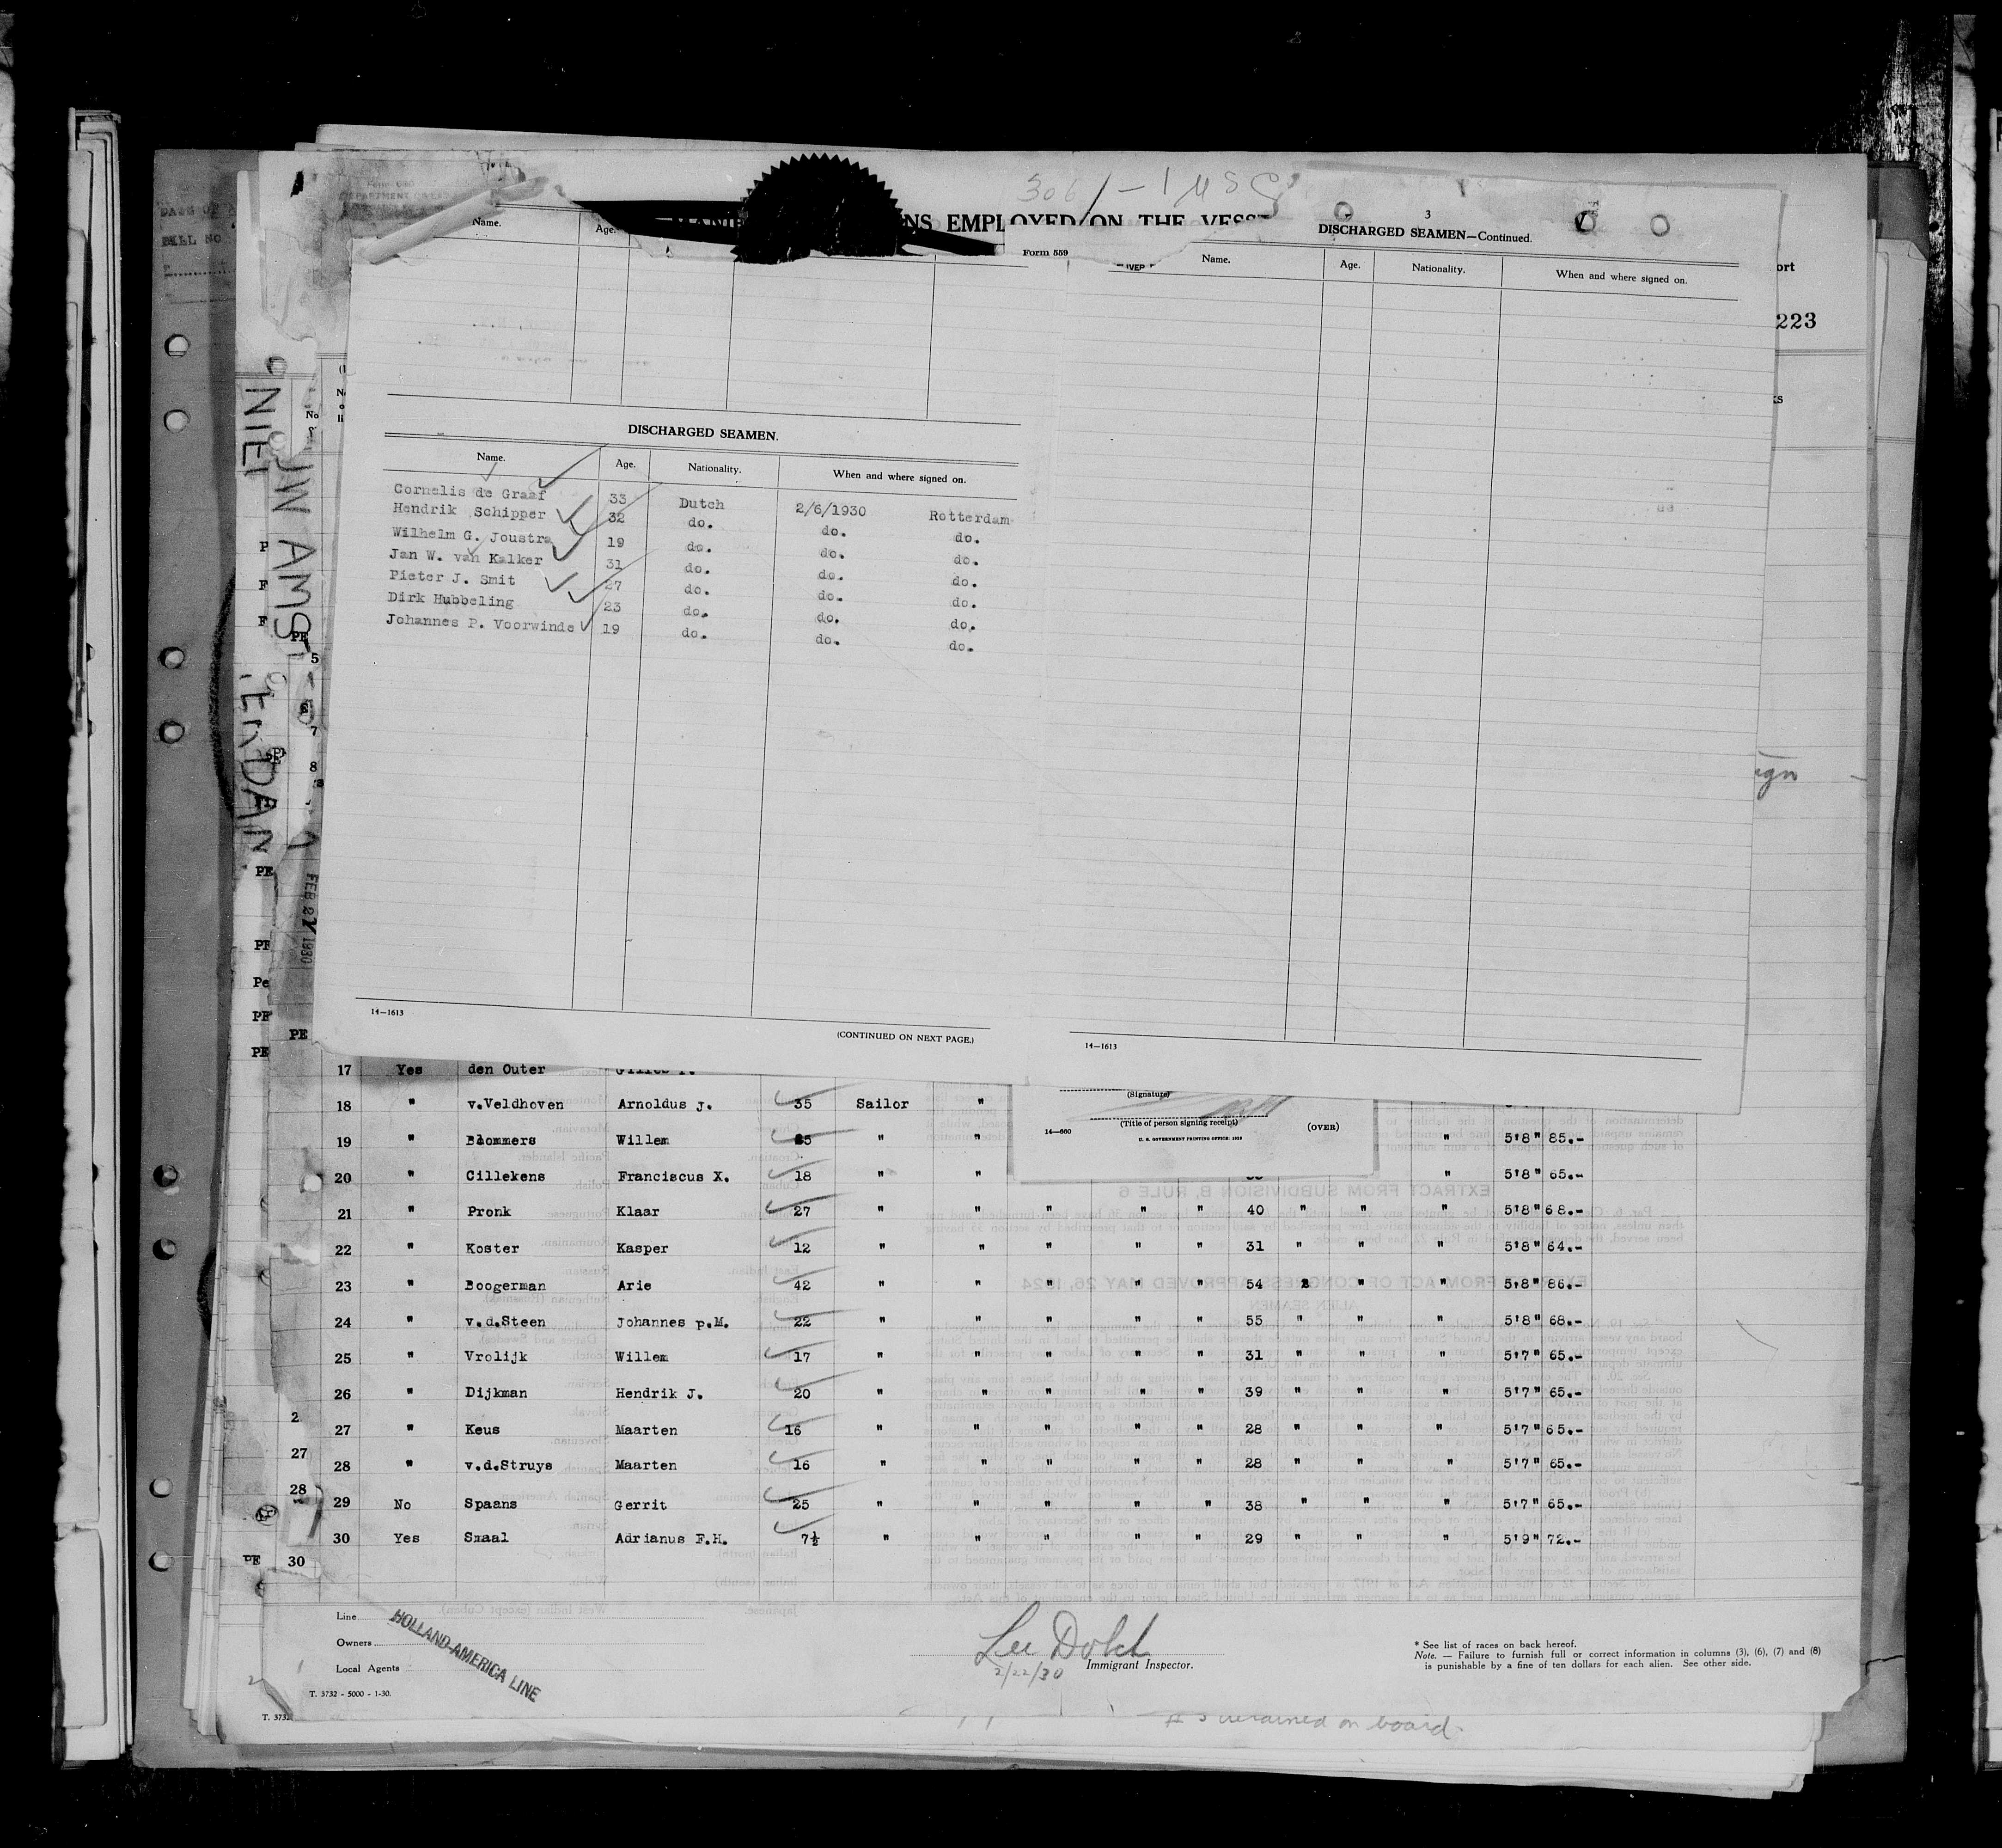 306 / - 1
EMPLOYED ON THE
Form 559
Name. Age.
3
DISCHARGED SEAMEN—Continued.
Name. Age. Nationality. When and where signed on.
ort
223
ks
DISCHARGED SEAMEN.
Name. Age. Nationality. When and where signed on.
Cornelis de Graaf 33 Dutch 2/6/1930 Rotterdam
Hendrik Schipper 32 do. do. do.
Wilhelm G. Joustra 19 do. do. do.
Jan W. van Kalker 31 do. do. do.
Pieter J. Smit 27 do. do. do.
Dirk Hubbeling 23 do. do. do.
Johannes P. Voorwinde 19 do. do. do.
FEB 21 1930
14—1613
(CONTINUED ON NEXT PAGE.)
14—1613
17 Yes den Outer
18 " v.Veldhoven Arnoldus J. 35 Sailor "
(Signature)
(Title of person signing receipt)
14—660
U. S. GOVERNMENT PRINTING OFFICE:
(OVER)
19 " Blommers Willem 25 " " " 5'8" 85.-
20 " Cillekens Franciscus X. 18 " " " 5'8" 65.-
21 " Pronk Klaar 27 " " " " " 40 " " " 5'8" 68.-
22 " Koster Kasper 12 " " " " " 31 " " " 5'8" 64.-
23 " Boogerman Arie 42 " " " " " 54 2 " " 5'8" 86.-
24 " v.d.Steen Johannes p.M. 22 " " " " " 55 " " " 5'8" 68.-
25 " Vrolijk Willem 17 " " " " " 31 " " " 5'7" 65.-
26 " Dijkman Hendrik J. 20 " " " " " 39 " " " 5'7" 65.-
27 " Keus Maarten 16 " " " " " 28 " " " 5'7" 65.-
28 " v.d.Struys Maarten 16 " " " " " 28 " " " 5'7" 65.-
29 No Spaans Gerrit 25 " " " " " 38 " " " 5'7" 65.-
30 Yes Smaal Adrianus F.H. 7½ " " " " " 29 " " " 5'9" 72.-
Line
Owners
Local Agents
HOLLAND-AMERICA LINE
T. 3732 - 5000 - 1-30.
Lee Dolch
2/22/30
Immigrant Inspector.
* See list of races on back hereof.
Note. — Failure to furnish full or correct information in columns (3), (6), (7) and (8)
is punishable by a fine of ten dollars for each alien. See other side.
T. 3732
on board.